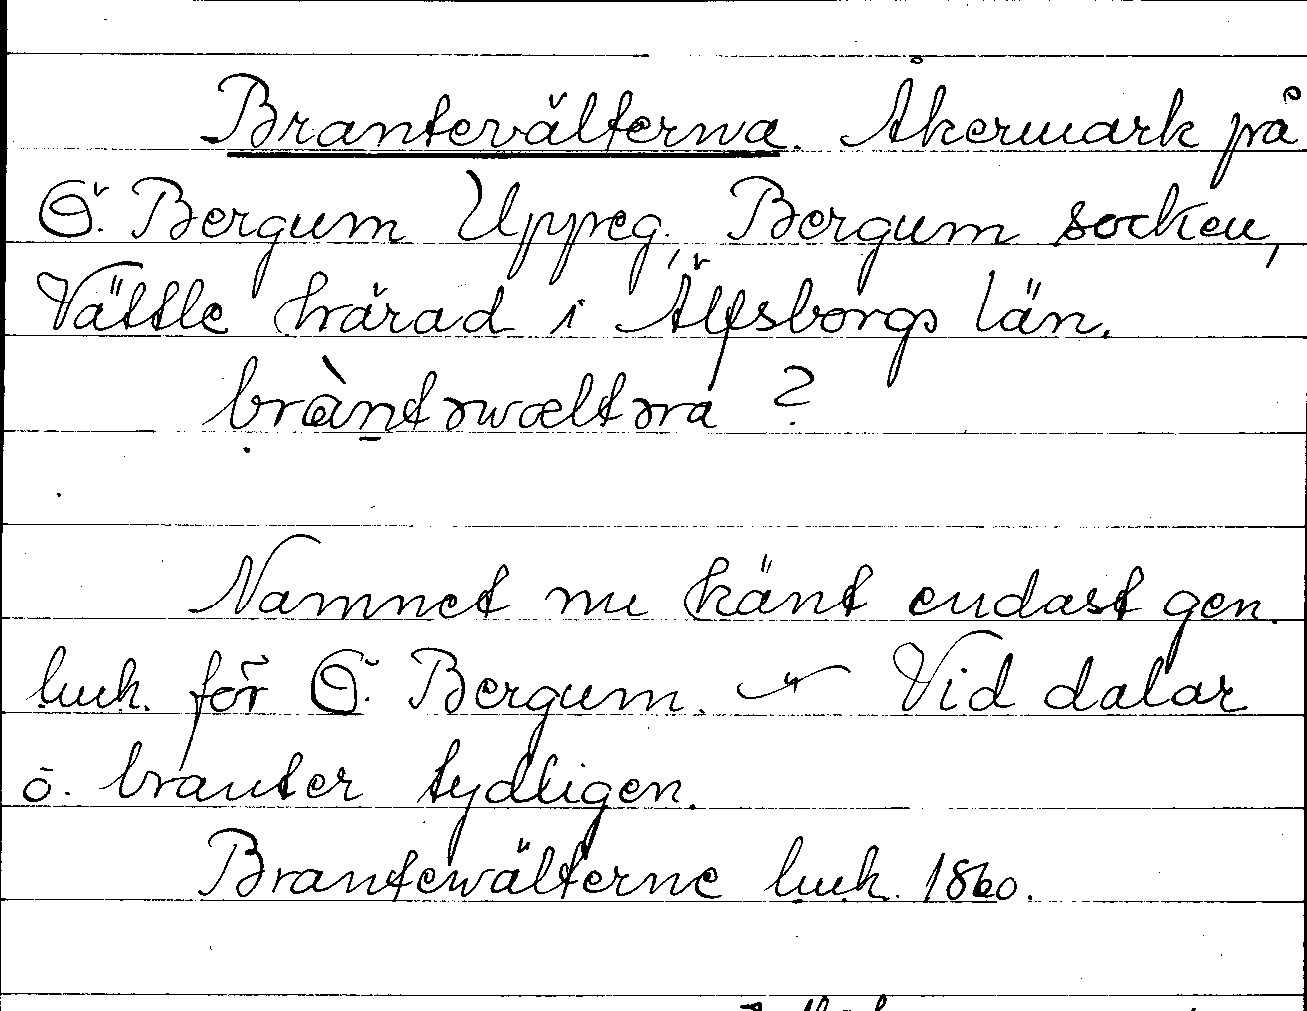 Brantevälterna. Åkermark på
Ö. Bergum Uppeg., Bergum socken,
Vättle härad i Älfsborgs län.
bràntəwæltəra ?
Namnet nu känt endast gen.
luck. för Ö. Bergum. Vid dalar
o. branter tydligen.
Brantewälterne luck. 1860.